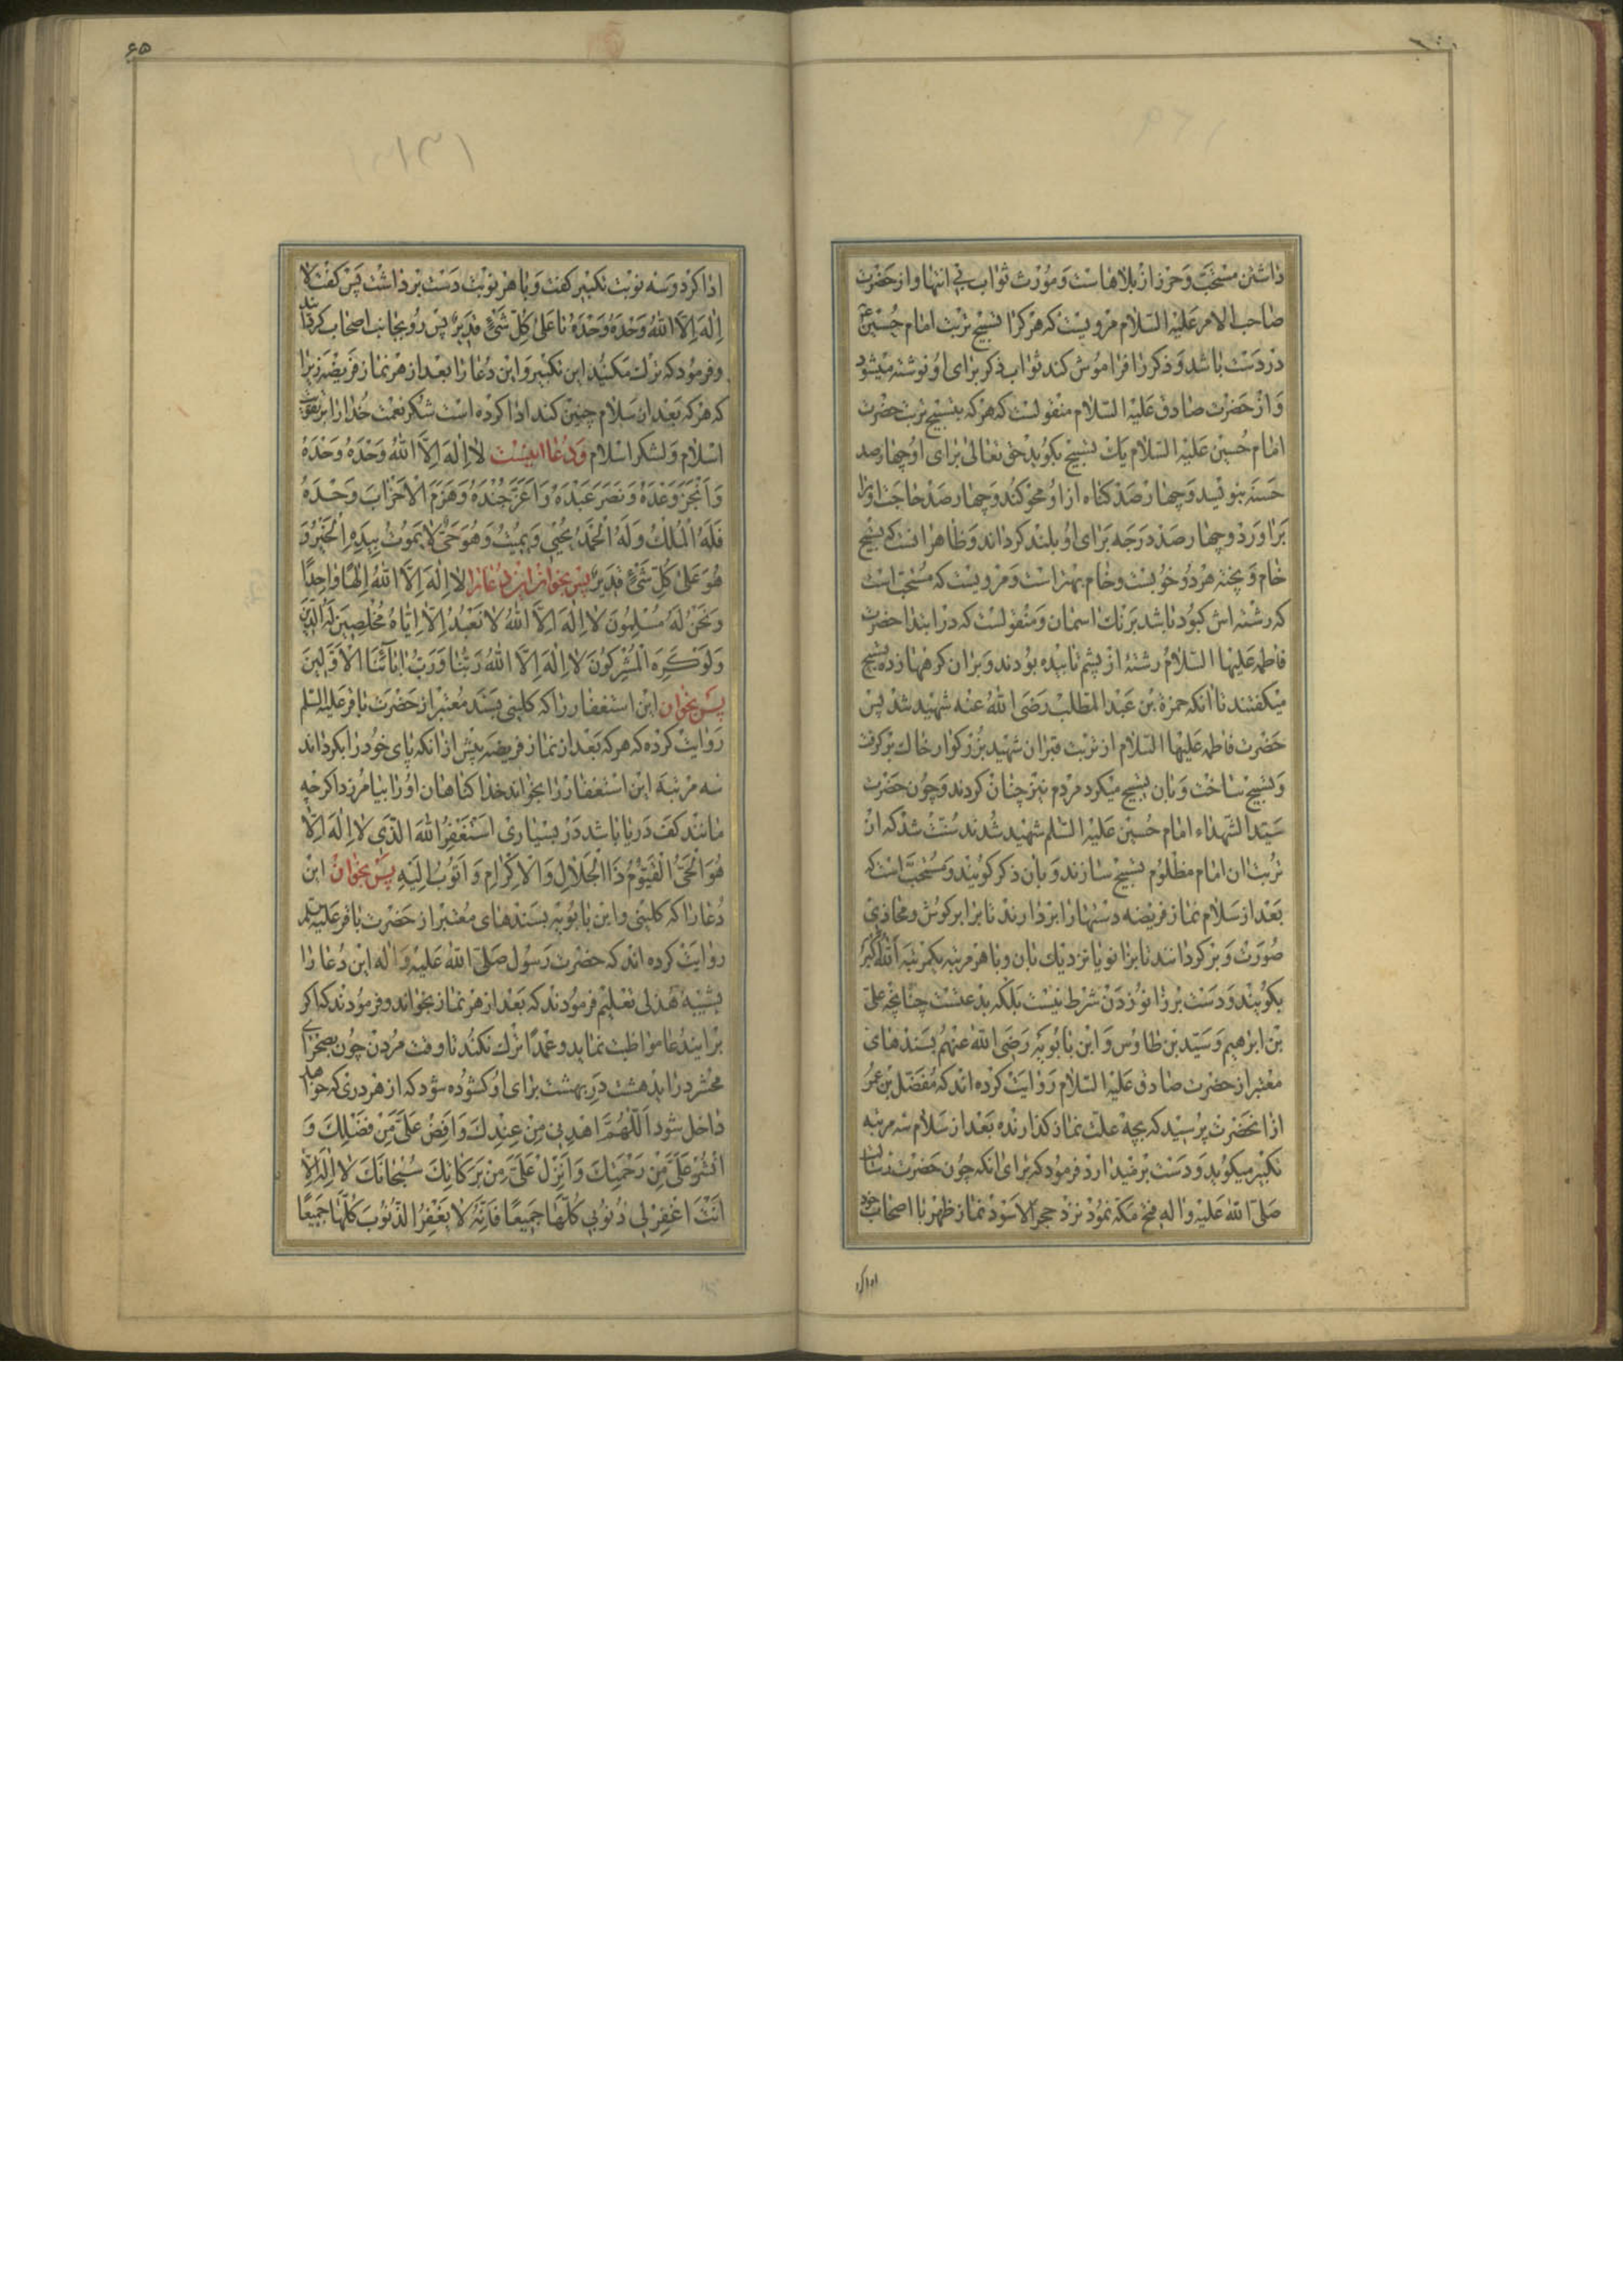 داشتن مستحبّ و حرز از بلاهاست و مورث ثواب بی انتها و از حضرت
صاحب الامر علیه السّلام مرویست که هر کرا تسبیح تربت امام حسین ع
در دست باشد و ذکر را فراموش کند ثواب ذکر برای او نوشته میشود
و از حضرت صادق علیه السّلام منقولست که هر که بتسبیح تربت حضرت
امام حسین علیه السّلام یک تسبیح بگوید حق تعالی برای او چهار صد
حسنه بنویسد و چهار صد گناه از او محو کند و چهار صد حاجت او را
براورد و چهار صد درجه برای او بلند گرداند و ظاهرا نست که تسبیح
خام و پخته هر دو خوبست و خام بهتر است و مرویست که مستحب است
که رشته اش کبود باشد برنک اسمان و منقولست که در ابتدا حضرت
فاطمه علیها السّلام رشتۀ از پشم تابیده بودند و بران کرهها زده تسبیح
میکفتند تا انکه حمزة بن عبد المطلب رضی الله عنه شهید شد پس
حضرت فاطمه علیها السّلام از تربت قبر ان شهید بزرکوار خاک برکرفت
و تسبیح ساخت و بان تسبیح میکرد مردم نیز چنان کردند و چون حضرت
سیّد الشّهداء امام حسین علیه السّلم شهید شدند سنّت شد که از
تربت ان امام مظلوم تسبیح سازند و بان ذکر کویند و مستحبّ است که
بعد از سلام نماز فریضه دستها را بردارند تا برابر کوش و محاذی
صورت و برکردانند تا برانو یا نزدیک بان و با هر مرتبه یکمرتبه الله اکبر
بگویند و دست بر زانو زدن شرط نیست بلکه بدعتست چنانچه علی
بن ابرهیم و سیّد بن طاوس و ابن بابویه رضی الله عنهم بسندهای
معتبر از حضرت صادق علیه السّلام روایت کرده اند که مفضّل بن عمر
از انحضرت پرسید که بچه علت نماز کذارنده بعد از سلام سه مرتبه
تکبیر میکوید و دست برمیدارد فرمود که برای انکه چون حضرت رسالت
صلی الله علیه و اله فتح مکه نمود نزد حجر الاسود نماز ظهر با اصحاب خود
ادا کرد
۶۵
ادا کرد و سه نوبت تکبیر کفت و با هر نوبت دست برداشت پس کفت لا
اله الّا الله وحده وحده تا علی کلّ شیء قدیر پس رو بجانب اصحاب کردند
و فرمود که ترک مکنید این تکبیر و این دعا را بعد از هر نماز فریضه زیرا
که هر که بعد از سلام چنین کند ادا کرده است شکر نعمت خدا را بر تقویت
اسلام و لشکر اسلام و دعا اینست لا اله الّا الله وحده وحده
و انجز وعده و نصر عبده و اعزّ جنده و هزم الاحزاب وحده
فله الملک و له الحمد یحیی و یمیت و هو حیّ لا یموت بیده الخیر و
هو علی کلّ شیء قدیر پس بخوان این دعا را لا اله الّا الله الها واحدا
و نحن له مسلمون لا اله الّا الله لا نعبد الّا ایّاه مخلصین له الدّین
و لو کره المشرکون لا اله الّا الله ربّنا و ربّ ابآئنا الاوّلین
پس بخوان این استغفار را که کلینی بسند معتبر از حضرت باقر علیه السّلم
روایت کرده که هر که بعد از نماز فریضه پیش از انکه پای خود را بکرداند
سه مرتبه این استغفار را بخواند خدا کناهان او را بیامرزد اکرچه
مانند کف دریا باشد در بسیاری استغفر الله الّذی لا اله الّا
هو الحیّ القیّوم ذا الجلال و الاکرام و اتوب الیه پس بخوان این
دعا را که کلینی و ابن بابویه بسندهای معتبر از حضرت باقر علیه السلم
روایت کرده اند که حضرت رسول صلی الله علیه و اله این دعا را
بشیبۀ هذلی تعلیم فرمودند که بعد از هر نماز بخواند و فرمودند که اکر
براین دعا مواظبت نماید و عمدا ترک نکند تا وقت مردن چون بصحرای
محشر دراید هشت در بهشت برای او کشوده شود که از هر دری که خواهد
داخل شود اللّهمّ اهدنی من عندک و افض علیّ من فضلک و
انشر علیّ من رحمتک و انزل علیّ من برکاتک سبحانک لا اله الّا
انت اغفر لی ذنوبی کلّها جمیعا فانّه لا یغفر الذّنوب کلّها جمیعا